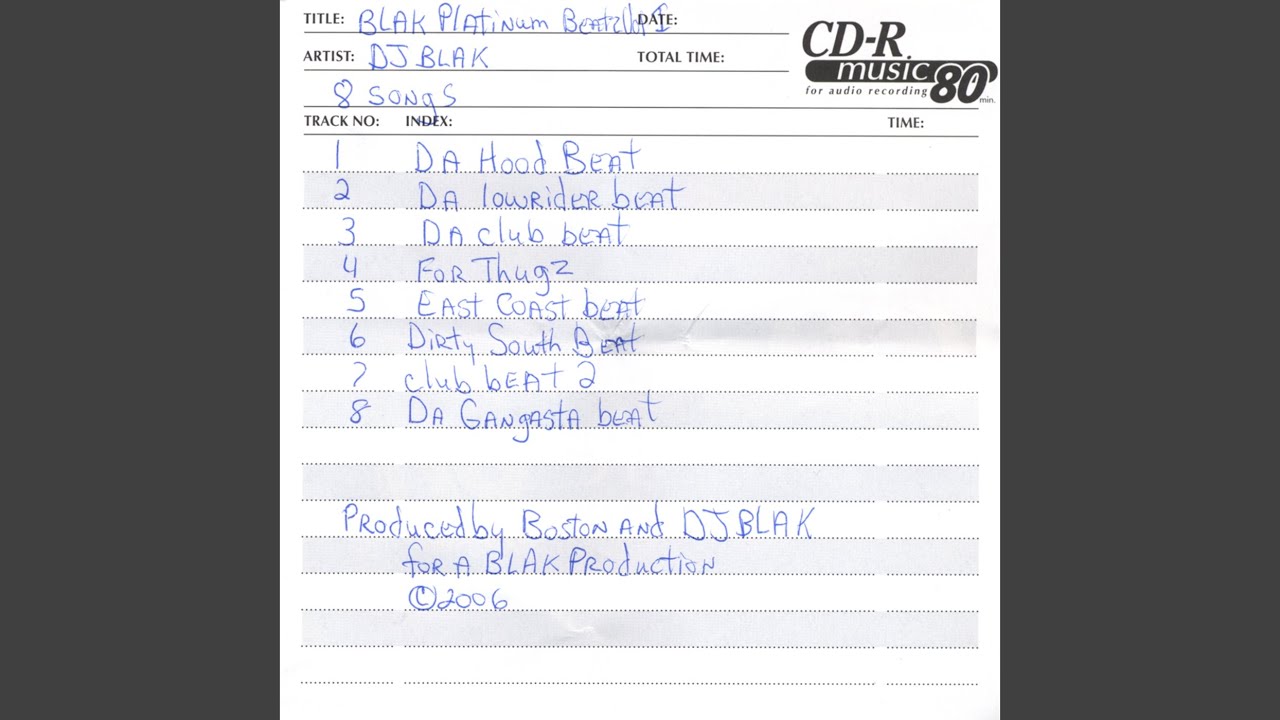 TITLE: BLAK Platinum Beatz Vol I DATE:
ARTIST: DJ BLAK TOTAL TIME:
8 SONGS
CD-R
music 80
for audio recording min.
TRACK NO: INDEX: TIME:
1 DA Hood BEAT
2 DA lOWRiDER bEAT
3 DA club bEAT
4 FOR Thugz
5 EAST COAST bEAT
6 DiRty South BEAT
7 club bEAT 2
8 DA GANgASTA bEAT
PRODuced by BOSTON AND DJ BLAK
foR A BLAK PRODUCTiON
©2006